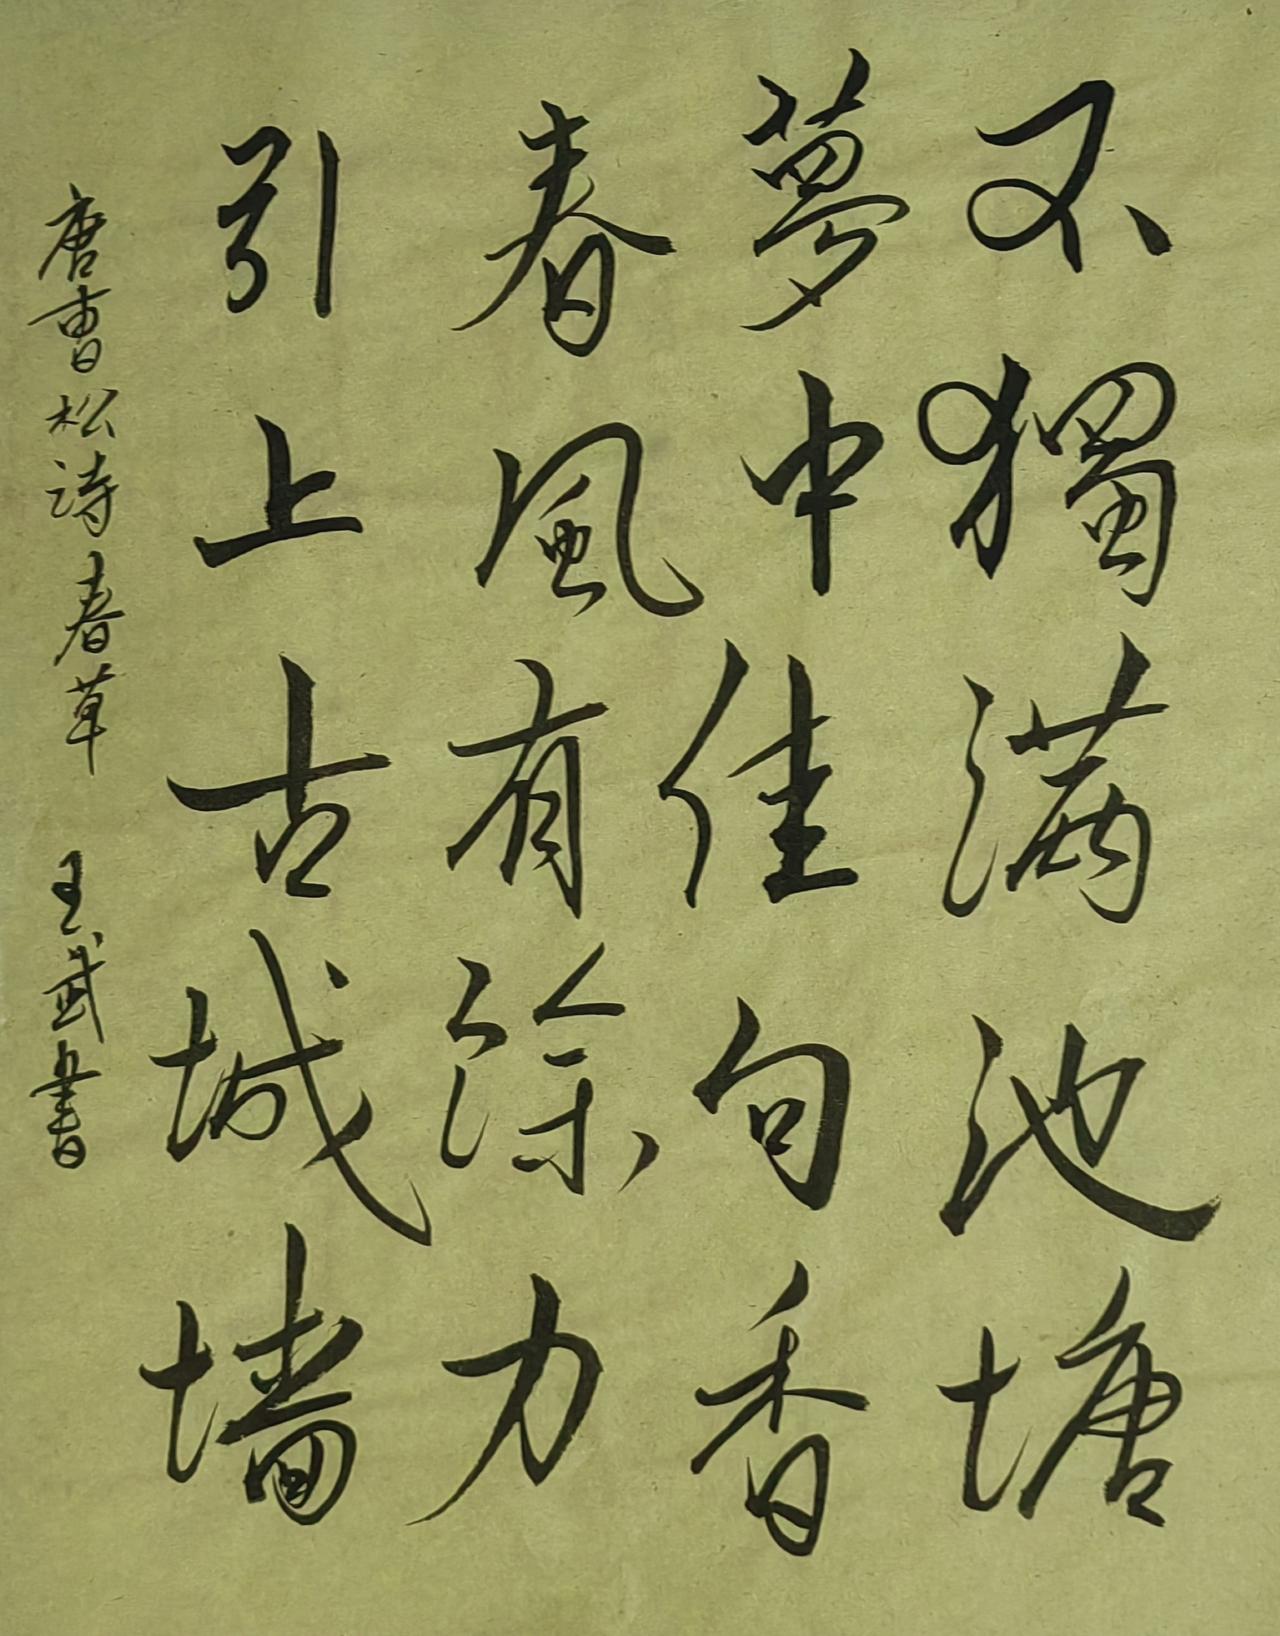 不獨满池塘
夢中佳句香
春風有馀力
引上古城墙
唐曹松诗春草 王武書